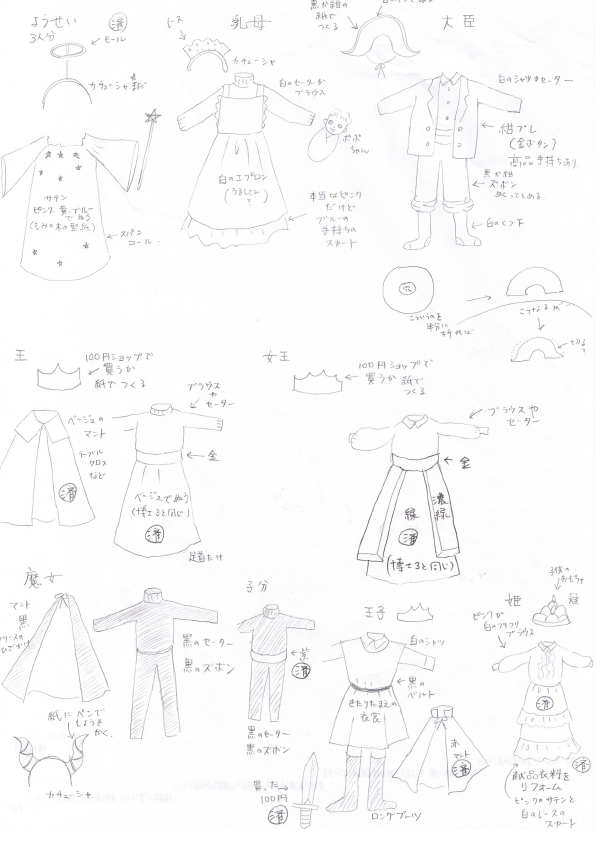 ようせい
済
3人分
モール
カチューシャ
サテン
ピンク 黄 ブルー
でぬう
スパン
コール
乳母
カチューシャ
白のセーターか
ブラウス
ポポ
ちゃん
白のエプロン
本当はピンク
だけど
ブルーの
手持ちの
スカート
大臣
黒か紺の
紙で
つくる
白のシャツかセーター
紺ブレ
(金ボタン)
高品手持ちあり
黒か紺
ズボン
白のくつ下
穴
こういうのを
半分に
こうなるが
切る
王
100円ショップで
買うか
紙でつくる
ブラウス
や
セーター
ベージュの
マント
テーブル
クロス
など
済
金
ベージュでぬう
(博士3と同じ)
済
足首だけ
女王
100円ショップで
買うか 紙で
つくる
ブラウスや
セーター
金
緑
濃
緑
済
(博士3と同じ)
魔女
マント
黒
フリースの
ひざかけ
紙にペンで
もようを
かく
カチューシャ
黒のセーター
黒のズボン
子分
済
黒のセーター
黒のズボン
王子
白のシャツ
黒の
ベルト
きたりたまえの
衣装
赤
マント
済
買った
100円
済
ロングブーツ
姫
冠
子供の
おもちゃ
ピンクか
白のフリフリ
ブラウス
済
済
献品衣料を
リフォーム
ピンクのサテンと
白のレースの
スカート